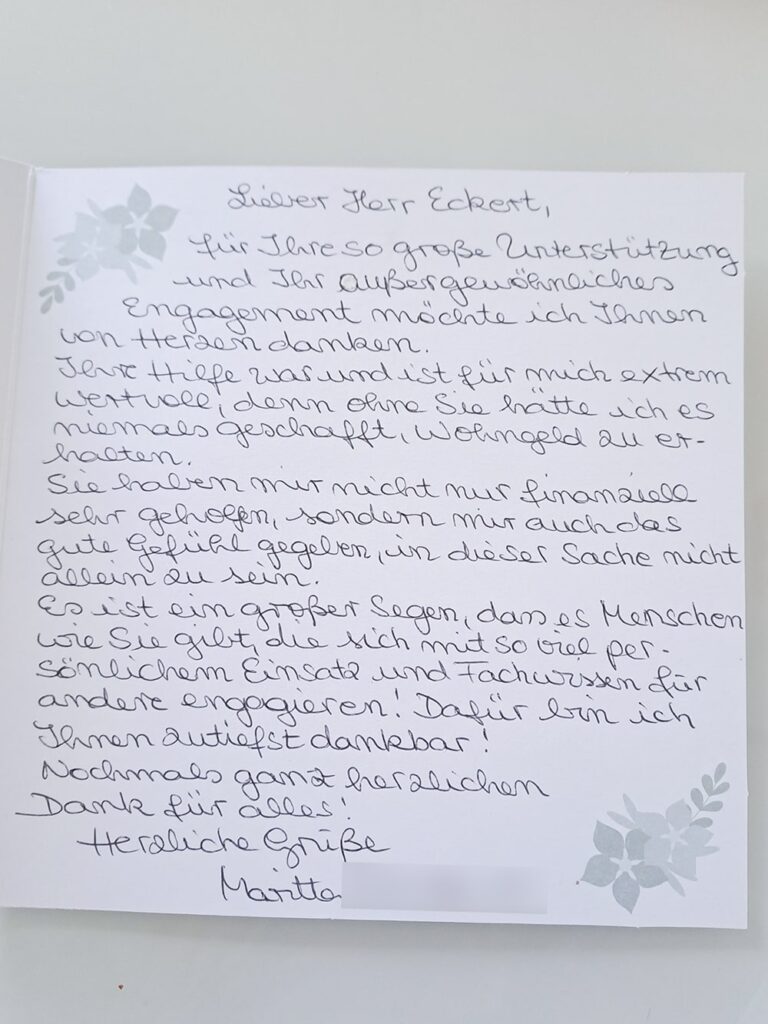 Lieber Herr Eckert,
für Ihre so große Unterstützung
und Ihr außergewöhnliches
Engagement möchte ich Ihnen
von Herzen danken.
Ihre Hilfe war und ist für mich extrem
wertvoll, denn ohne Sie hätte ich es
niemals geschafft, Wohngeld zu er-
halten.
Sie haben mir nicht nur finanziell
sehr geholfen, sondern mir auch das
gute Gefühl gegeben, in dieser Sache nicht
allein zu sein.
Es ist ein großer Segen, dass es Menschen
wie Sie gibt, die sich mit so viel per-
sönlichem Einsatz und Fachwissen für
andere engagieren! Dafür bin ich
Ihnen zutiefst dankbar!
Nochmals ganz herzlichen
Dank für alles!
Herzliche Grüße
Maritta